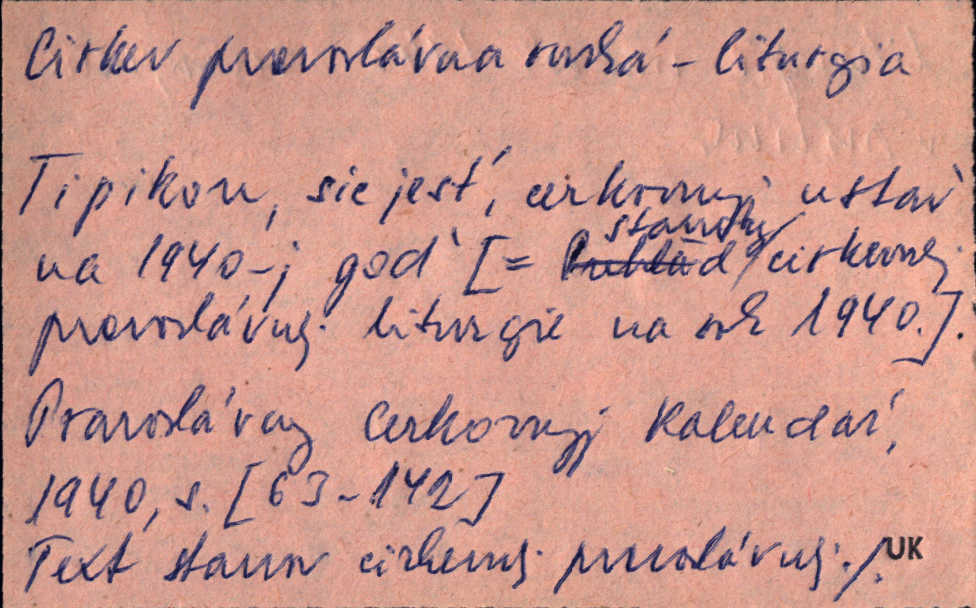 Cirkev pravoslávna ruská - liturgia
Tipikon, sie jest', cerkovnyj ustav'
na 1940-j god' [= stanovy cirkevnej
pravoslávnej liturgie na rok 1940.].
Pravoslávny cerkovnyj kalendar',
1940, s. [63-142]
Text stanov cirkevnej pravoslávnej./.
UK